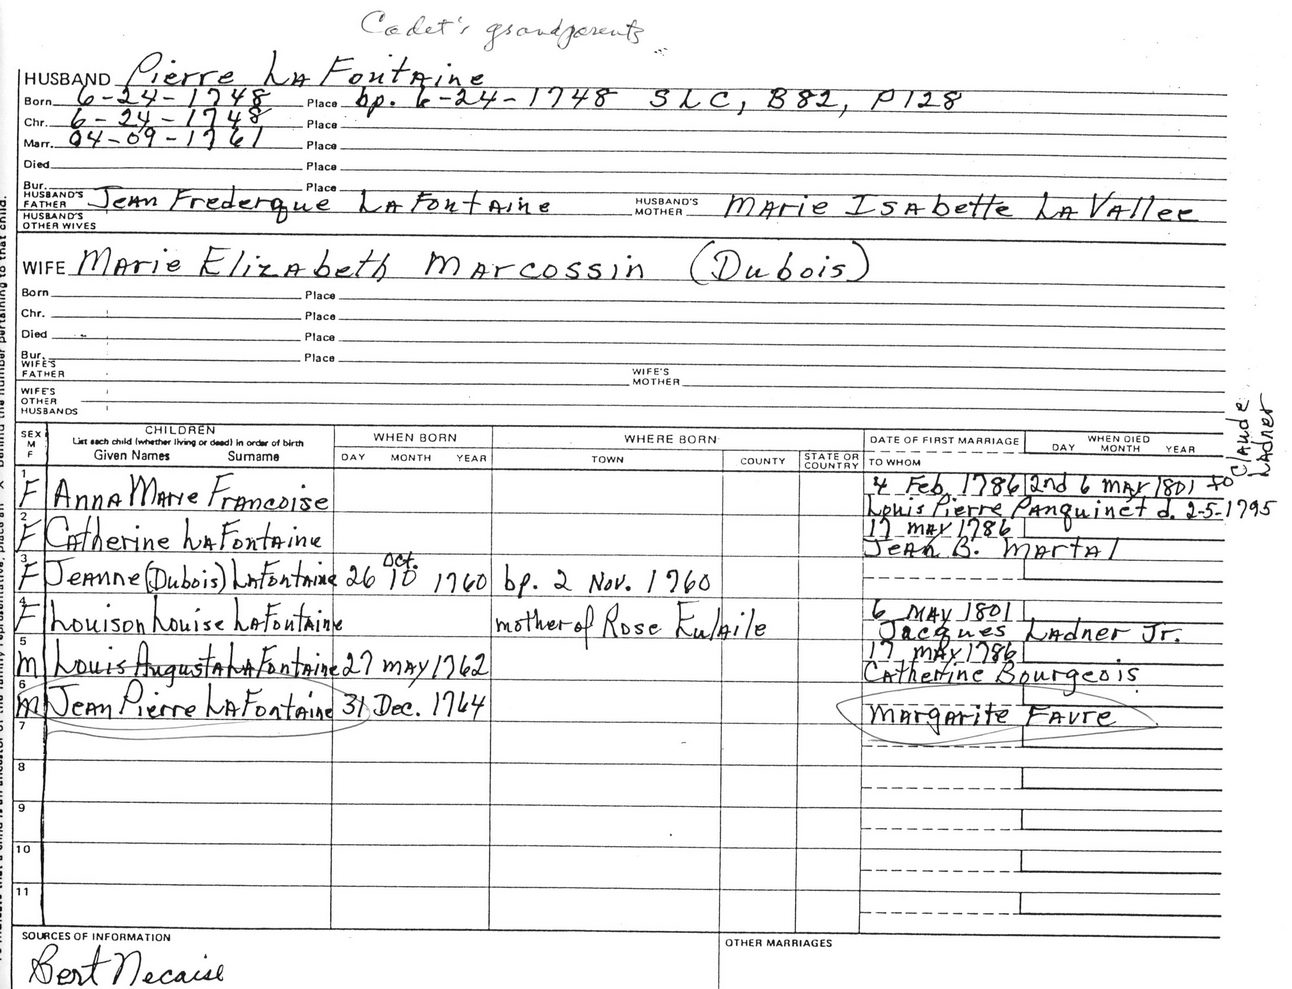 Cadet's grandparents
HUSBAND Pierre LaFontaine
Born 6-24-1748 Place bp. 6-24-1748 SLC, B82, P128
Chr. 6-24-1748 Place
Marr. 04-09-1761 Place
Died Place
Bur. Place
HUSBAND'S FATHER Jean Frederque LaFontaine HUSBAND'S MOTHER Marie Isabette LaVallee
HUSBAND'S OTHER WIVES
WIFE Marie Elizabeth Marcossin (Dubois)
Born Place
Chr. Place
Died Place
Bur. Place
WIFE'S FATHER WIFE'S MOTHER
WIFE'S OTHER HUSBANDS
SEX M F CHILDREN List each child (whether living or dead) in order of birth Given Names Surname WHEN BORN DAY MONTH YEAR WHERE BORN TOWN COUNTY STATE OR COUNTRY DATE OF FIRST MARRIAGE TO WHOM WHEN DIED DAY MONTH YEAR
Claude Ladner
1 F Anna Marie Francoise 4 Feb. 1786 2nd 6 May 1801 to
Louis Pierre Panquinet d. 2-5-1795
2 F Catherine LaFontaine 17 May 1786
Jean B. Martal
3 F Jeanne (Dubois) LaFontaine 26 Oct. 10 1760 bp. 2 Nov. 1760
4 F Louison Louise LaFontaine mother of Rose Eulaile 6 May 1801
Jacques Ladner Jr.
5 M Louis Augusta LaFontaine 27 May 1762 17 May 1786
Catherine Bourgeois
6 M Jean Pierre LaFontaine 31 Dec. 1764
Margarite Favre
7
8
9
10
11
SOURCES OF INFORMATION OTHER MARRIAGES
Bert Necaise